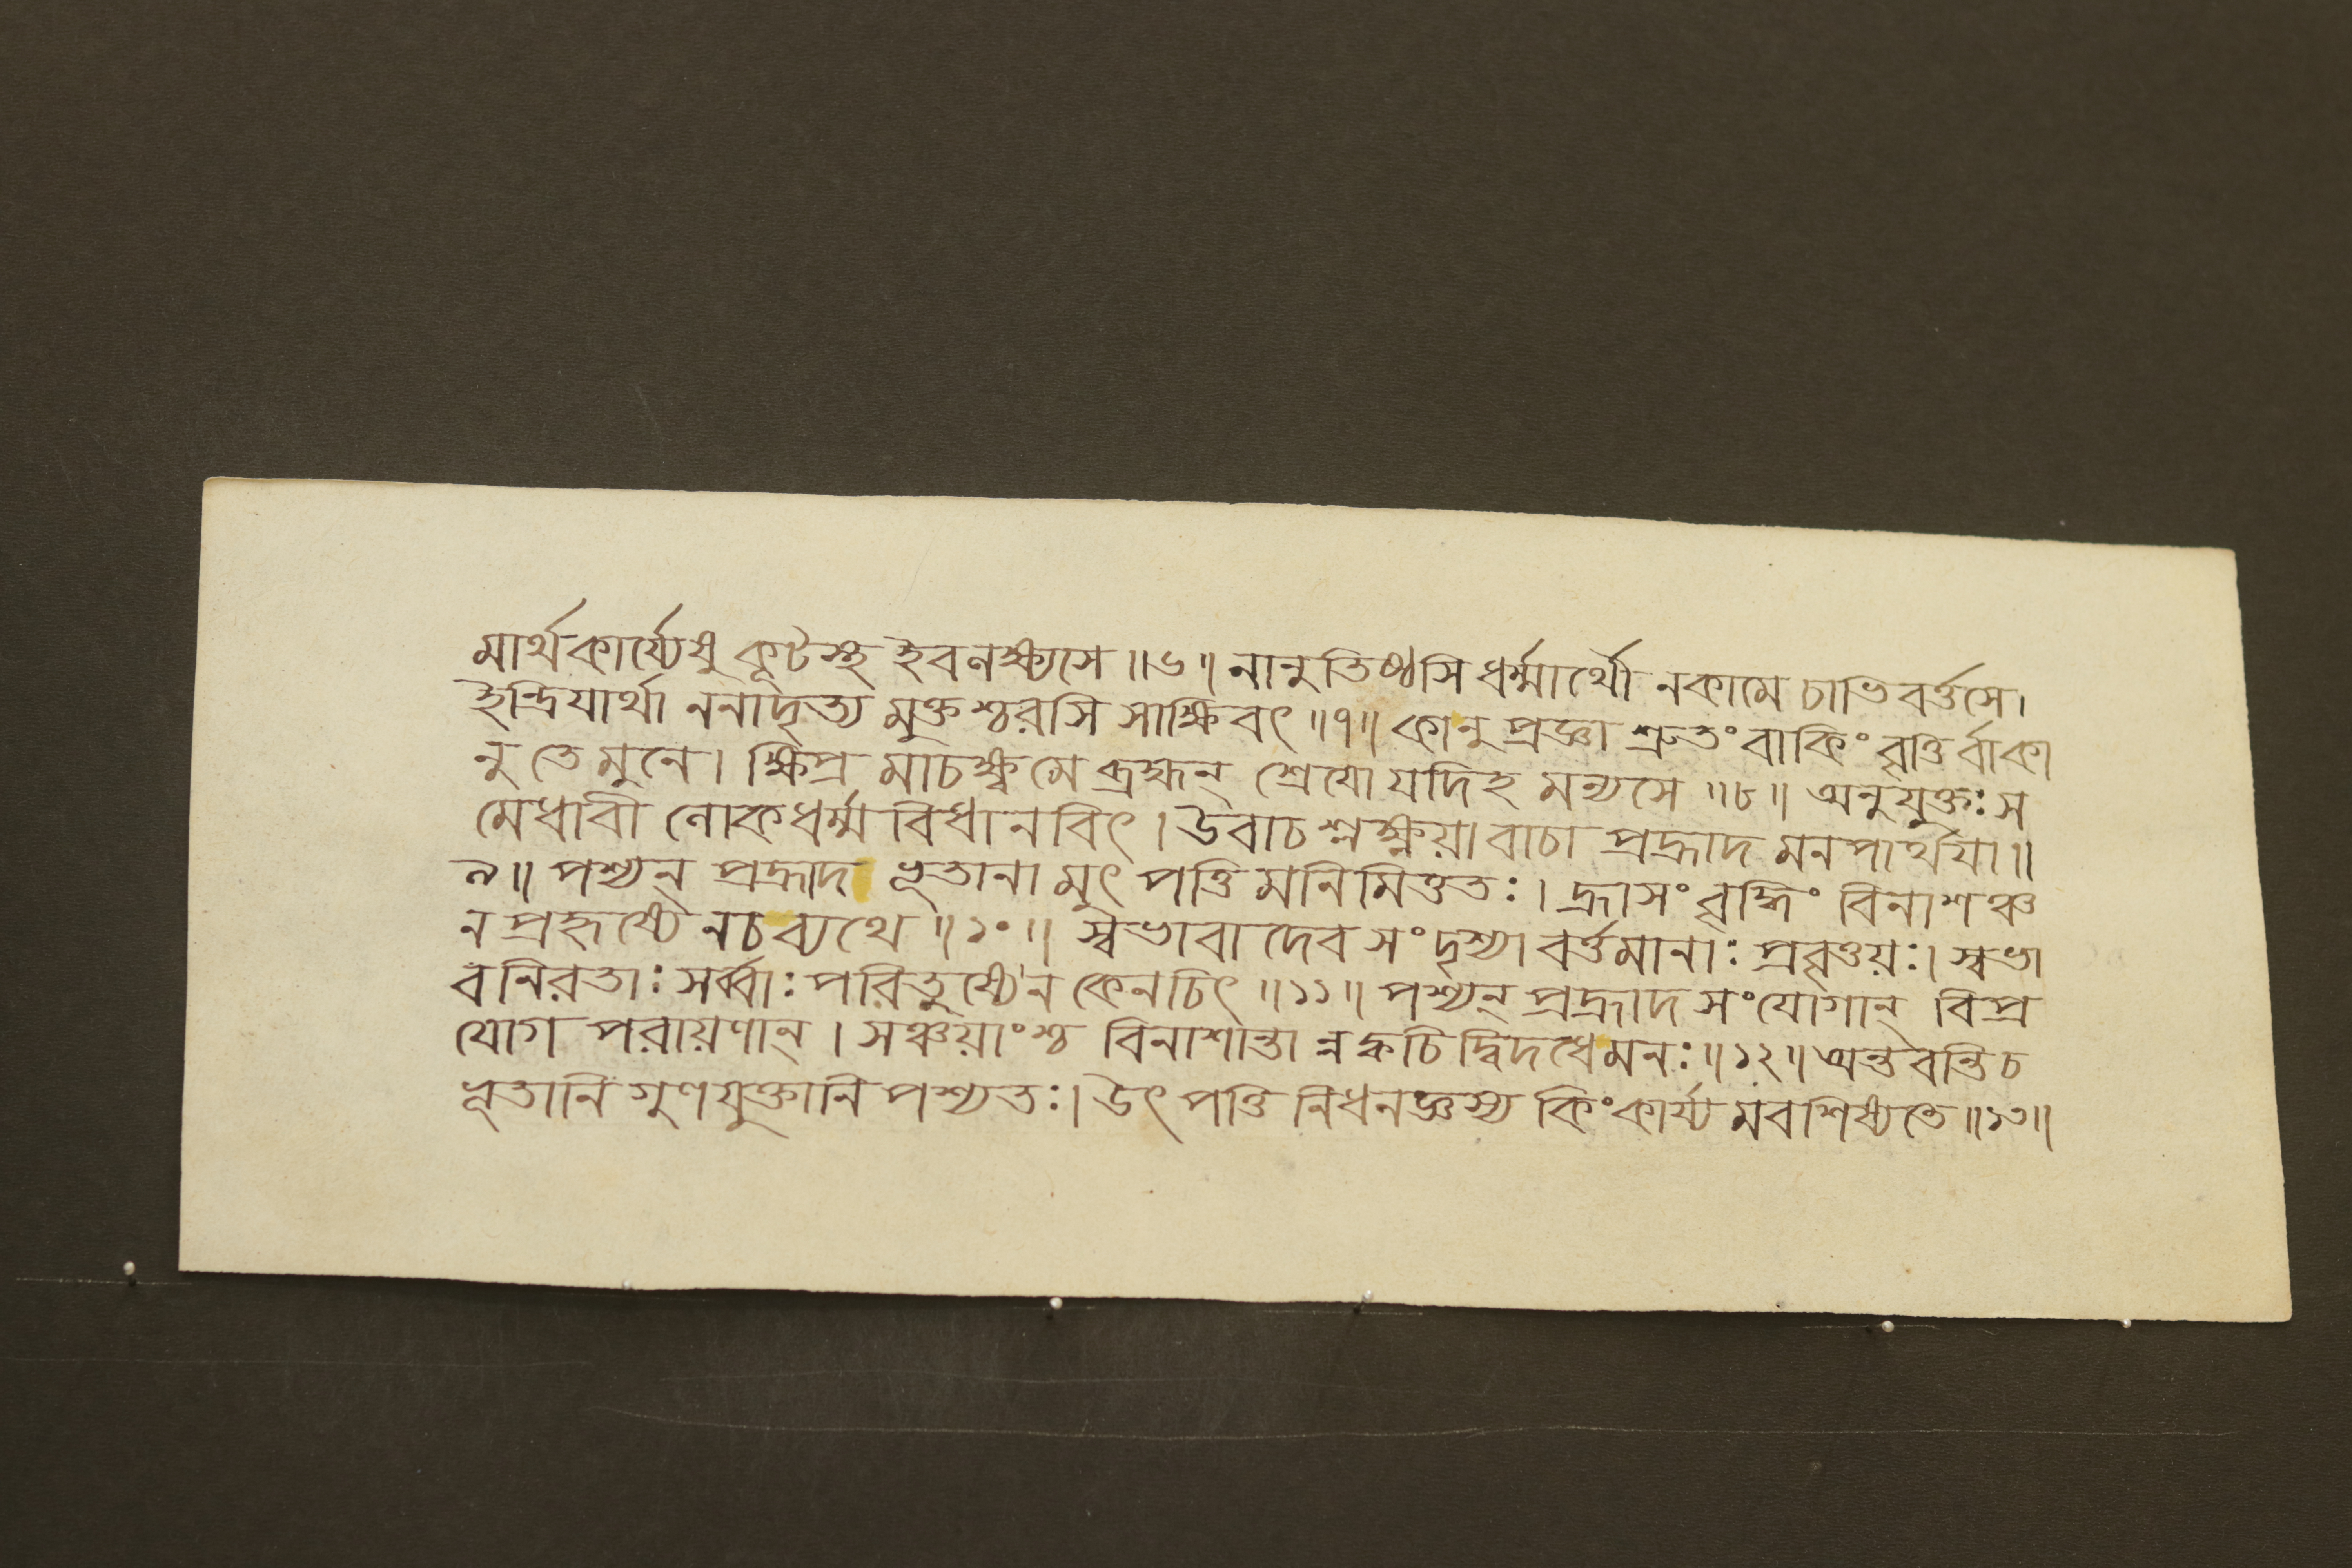 মার্থকার্য্যেষু কূটস্থ ইবলক্ষ্যসে ॥৬॥ নানুতিষ্ঠসি ধর্ম্মার্থৌ নকামে চাভিবর্ত্তসে।
ইন্দ্রিযার্থা ননাদৃত্য মুক্তশ্চরসি সাক্ষিবৎ ॥৭॥ কানু প্রজ্ঞা শ্রুতং বাকিং বৃত্তির্বাকা
নু তে মুনে। ক্ষিপ্র মাচক্ষ্ব মে ব্রহ্মন্ শ্রেযো যদিহ মন্যসে ॥৮॥ অনুযুক্তঃ স
মেধাবী লোকধর্ম্ম বিধানবিৎ। উবাচ শ্লক্ষ্ণয়া বাচা প্রহ্লাদ মনপার্থযা॥
৯॥ পশ্যন্ প্রহ্লাদ ভূতানা মুৎপত্তি মনিমিত্ততঃ। হ্রাসং বৃদ্ধিং বিনাশঞ্চ
ন প্রহৃষ্যে নচব্যথে ॥১০॥ স্বভাবাদেব সংদৃশ্যা বর্ত্তমানাঃ প্রবৃত্তয়ঃ। স্বভা
বনিরতাঃ সর্ব্বাঃ পরিতুষ্যেন কেনচিৎ ॥১১॥ পশ্যন্ প্রহ্লাদ সংযোগান্ বিপ্র
যোগ পরায়ণান্। সঞ্চয়াংশ্চ বিনাশান্তা ন্নক্বচিদ্বিদধেমনঃ ॥১২॥ অন্তবন্তি চ
ভূতানি গুণযুক্তানি পশ্যতঃ। উৎপত্তি নিধনজ্ঞস্য কিংকার্য্য মবশিষ্যতে ॥১৩॥